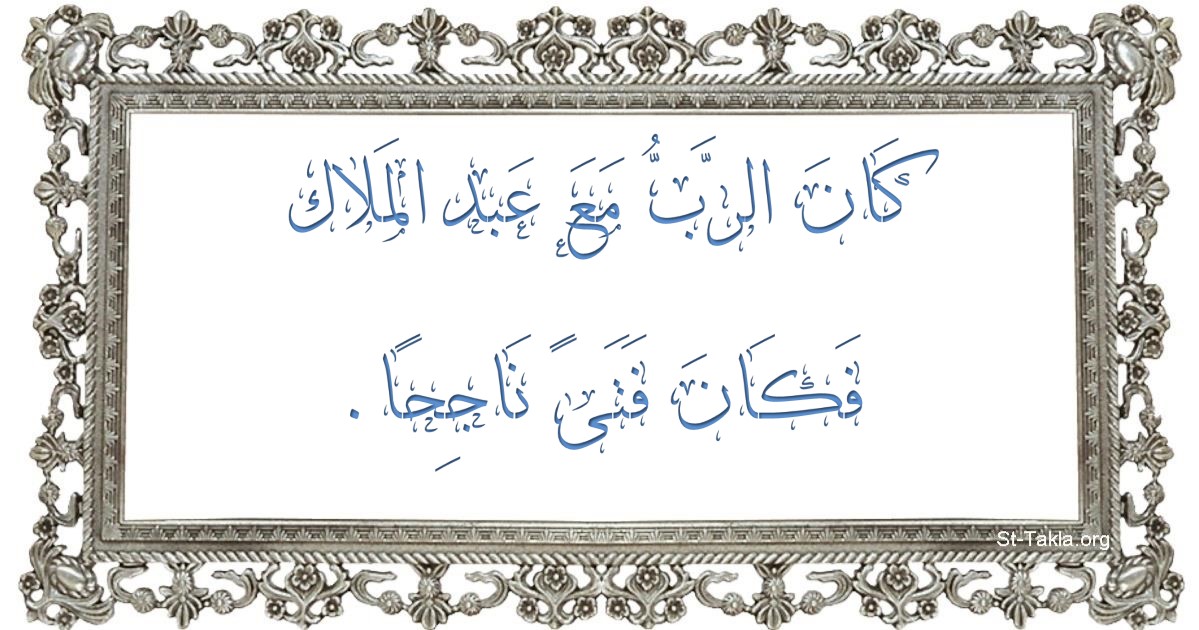 كَانَ الرَّبُّ مَعَ عَبْد الْمَلاك
فَكَانَ فَتَىً نَاجِحًا .
St-Takla.org